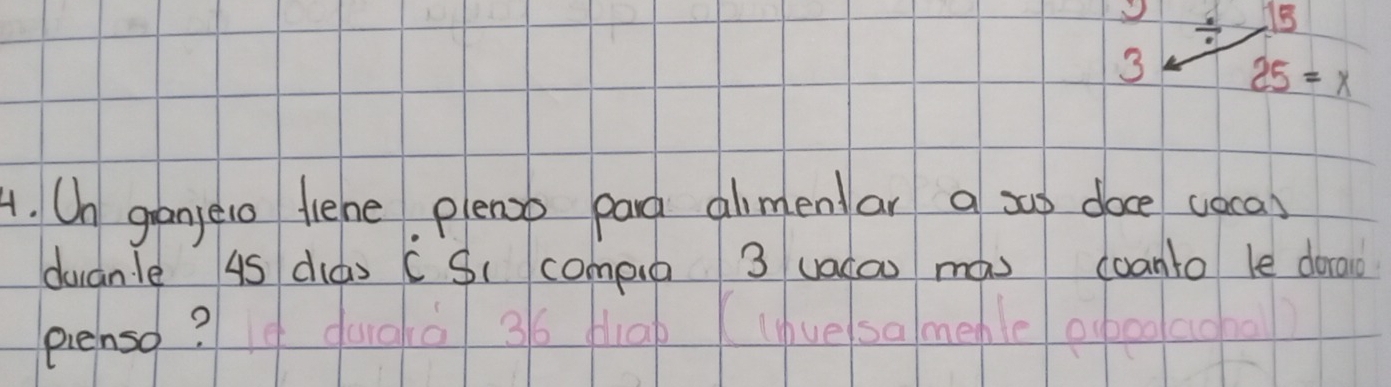 ÷ 15
3 25 = x
4. Un granjero tiene pienso para alimentar a sus doce vacas
durante 45 dias ¿ Si compra 3 vacas mas cuanto le durará
pienso? le durará 36 dias (inversamente proporcional)